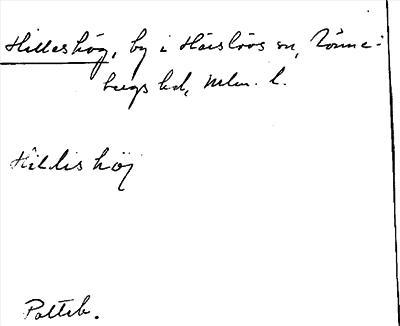 Hilleshög, by i Härslövs sn, Rönne-
bergs hd, Mlm. l.
Hillishöj
Polteb.